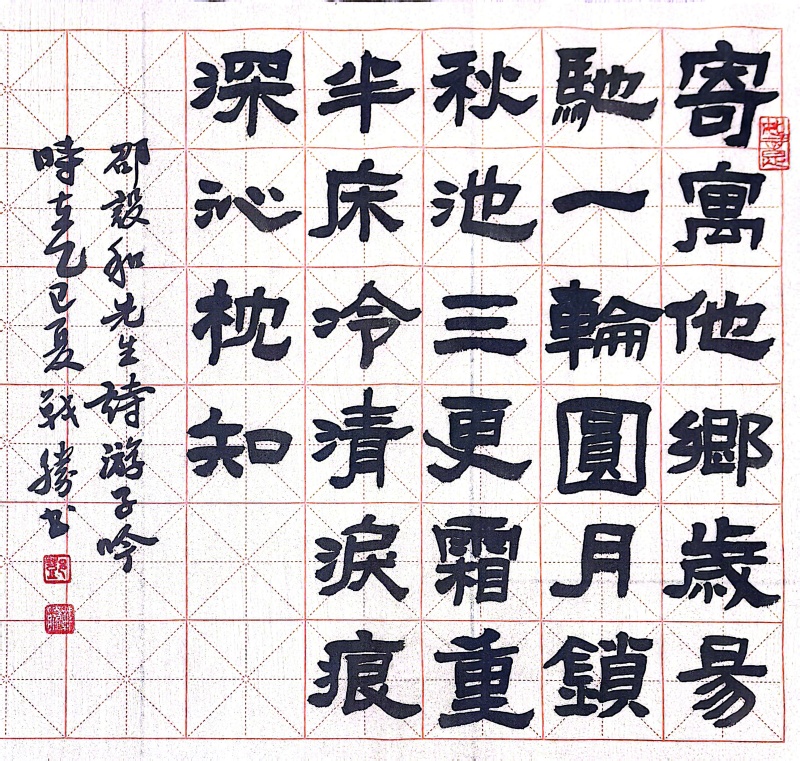 寄寓他鄉歲易
馳一輪圓月鎖
秋池三更霜重
半床冷清淚痕
深沁枕知
邵設和先生詩游子吟
時在乙巳夏戰勝书